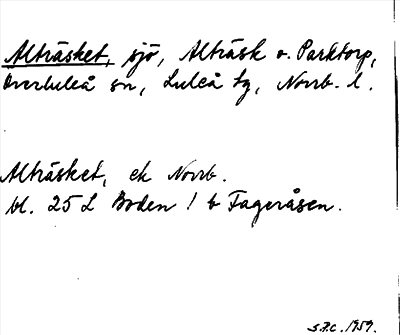 Alträsket, sjö, Alträsk o. Parktorp,
Överluleå sn, Luleå tg, Norrb. l.
Alträsket, ek Norrb.
bl. 25 L Boden / b Fageråsen.
S.F.C. 1959.